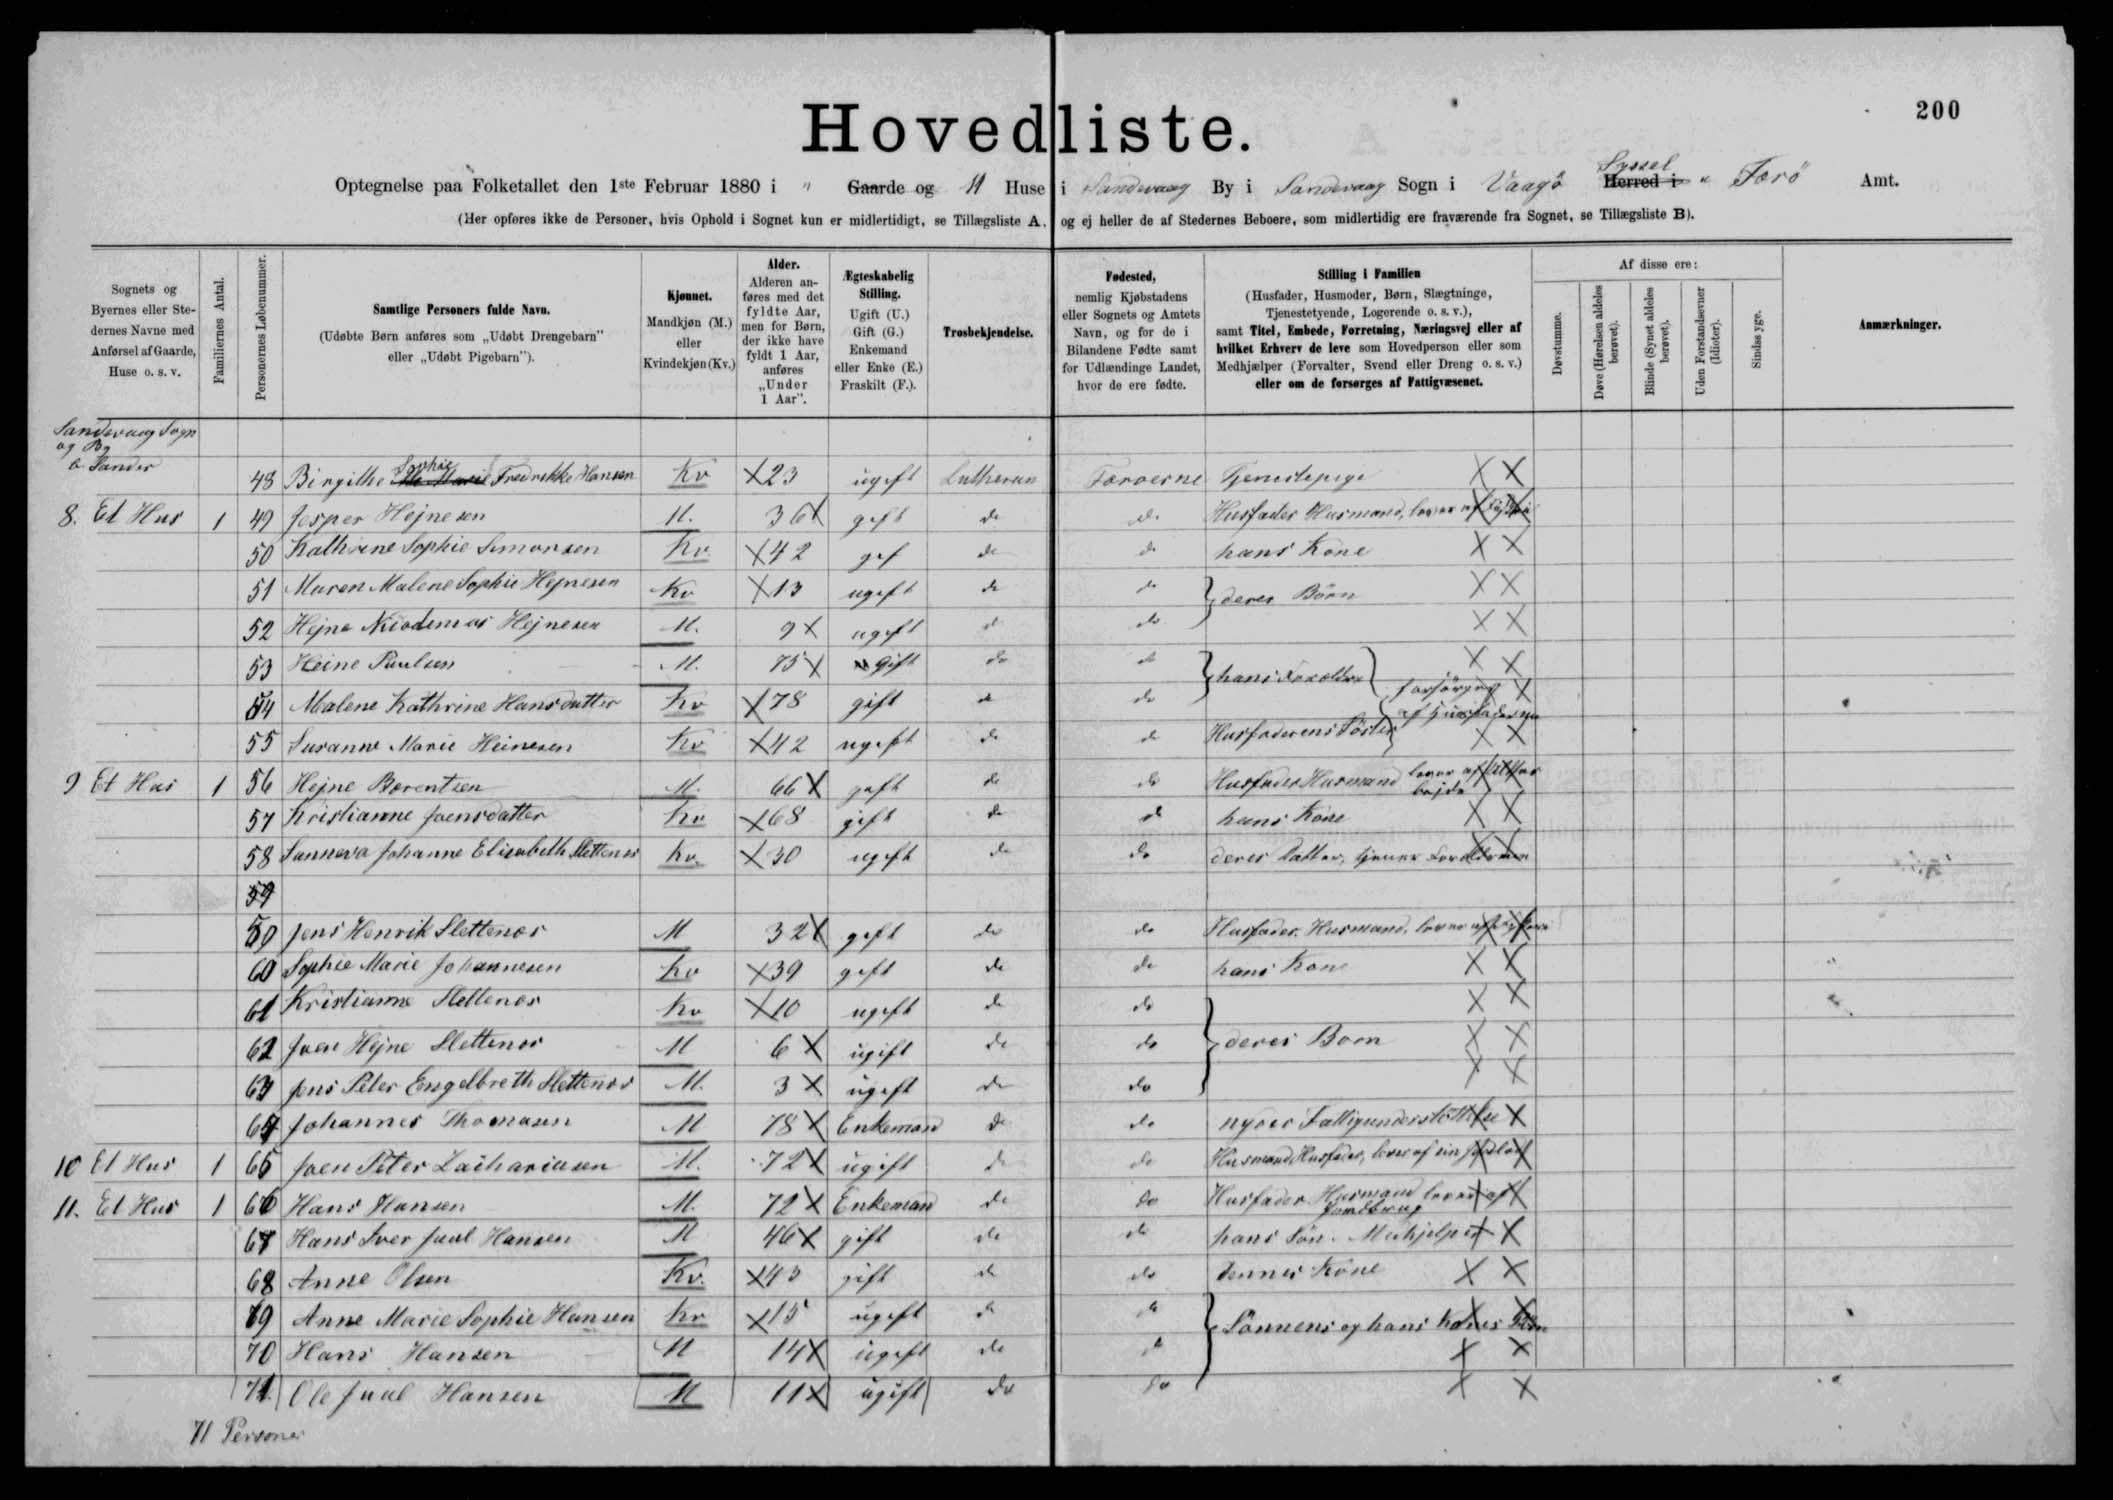 200
Hovedliste.
Optegnelse paa Folketallet den 1ste Februar 1880 i " Gaarde og 11 Huse i Sandevaag By i Sandevaag Sogn i Vaagö Syssel Herred i " Færö Amt.
(Her opføres ikke de Personer, hvis Ophold i Sognet kun er midlertidigt, se Tillægsliste A, og ej heller de af Stedernes Beboere, som midlertidig ere fraværende fra Sognet, se Tillægsliste B).
Sognets og Byernes eller Stedernes Navne med Anførsel af Gaarde, Huse o. s. v.
Familiernes Antal.
Personernes Løbenummer.
Samtlige Personers fulde Navn. (Udøbte Børn anføres som „Udøbt Drengebarn" eller „Udøbt Pigebarn").
Kjønnet. Mandkjøn (M.) eller Kvindekjøn (Kv.)
Alder. Alderen anføres med det fyldte Aar, men for Børn, der ikke have fyldt 1 Aar, anføres „Under 1 Aar".
Ægteskabelig Stilling. Ugift (U.) Gift (G.) Enkemand eller Enke (E.) Fraskilt (F.).
Trosbekjendelse.
Fødested, nemlig Kjøbstadens eller Sognets og Amtets Navn, og for de i Bilandene Fødte samt for Udlændinge Landet, hvor de ere fødte.
Stilling i Familien (Husfader, Husmoder, Børn, Slægtninge, Tjenestetyende, Logerende o. s. v.), samt Titel, Embede, Forretning, Næringsvej eller af hvilket Erhverv de leve som Hovedperson eller som Medhjælper (Forvalter, Svend eller Dreng o. s. v.) eller om de forsørges af Fattigvæsenet.
Af disse ere:
Døvstumme.
Døve (Hørelsen aldeles berøvet).
Blinde (Synet aldeles berøvet).
Uden Forstandsevner (Idioter).
Sindssyge.
Anmærkninger.
Sandevaag Sogn
og By
48 Birgithe Sophie Fredrikke Hansen Kv X 23 ugift Lutheran Færoerne Tjenestepige X X
8. Et Hus 1 49 Jesper Hejnesen M. 36 X gift do do Husfader Husmand, lever af X X
50 Kathrine Sophie Simonsen Kv. X 42 gif do do hans Kone X X
51 Maren Malene Sophie Hejnesen Kv X 13 ugift do do } deres Börn X X
52 Hejne Nicodemus Hejnesen M. 9 X ugift do do X X
53 Heine Paulsen M. 75 X gift do do } hans Forældre } X X
54 Malene Kathrine Hansdatter Kv X 78 gift do do forsörges X X
55 Susanne Marie Heinesen Kv X 42 ugift do do Husfaderens Söster } af Husfaderen X X
9 Et Hus 1 56 Hejne Barentsen M. 66 X gift do do Husfader Husmand lever af X X
57 Kristianne Joensdatter Kv X 68 gift do do hans Kone X X
58 Sunneva Johanne Elisabeth Slettenes Kv. X 30 ugift do do deres Datter, tjener Forældrene X X
59
59 Jens Henrik Slettenes M 32 X gift do do Husfader. Husmand, lever af X X
60 Sophie Marie Johannesen Kv X 39 gift do do hans Kone X X
61 Kristianne Slettenes Kv X 10 ugift do do X X
62 Joen Hejne Slettenes M 6 X ugift do do } deres Born X X
63 Jens Peter Engelbreth Slettenes M. 3 X ugift do do X X
64 Johannes Thomasen M 78 X Enkemand do do nyder Fattigunderstöttelse X X
10 Et Hus 1 65 Joen Peter Zachariasen M. 72 X ugift do do Husmand Husfader, lever af sin Jordlod X X
11. Et Hus 1 66 Hans Hansen M. 72 X Enkemand do do Husfader. Husmand lever af Jordbrug X X
67 Hans Iver Juul Hansen M 46 X gift do do hans Sön. Medhjelper X X
68 Anne Olsen Kv. X 43 gift do do dennes Kone X X
69 Anne Marie Sophie Hansen Kv X 15 ugift do do } Sönnens og hans Kones Börn X X
70 Hans Hansen M 14 X ugift do do X X
71. Ole Juul Hansen M 11 X ugift do do X X
71 Personer